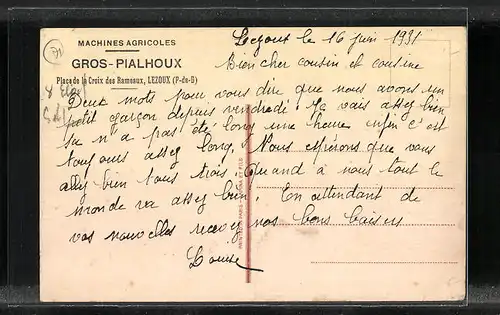 MACHINES AGRICOLES
GROS-PIALHOUX
Place de la Croix des Rameaux, LEZOUX (P-de-D)
Lezoux le 16 juin 1931
Bien cher cousin et cousine
Deux mots pour vous dire que nous avons un
petit garçon depuis vendredi. Ça vais assez bien
sa n'a pas été long une heure enfin c'est
toujours assez long. Nous espérons que vous
allez bien tous trois. Quand à nous tout le
monde va assez bien. En attendant de
vos nouvelles recevez nos bons baisers
Louise